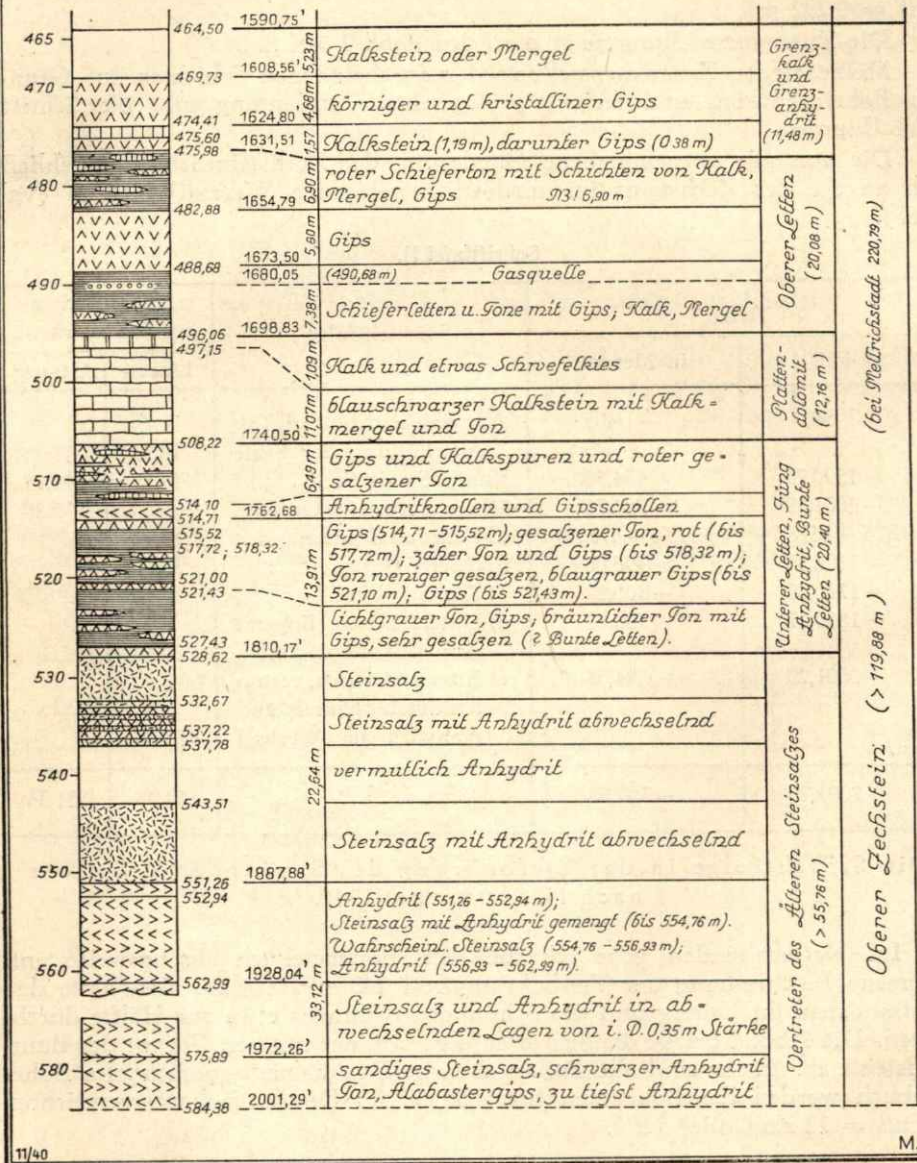 465
470
480
490
500
510
520
530
540
550
560
580
464,50
469,73
474,41
475,60
475,98
482,88
488,68
496,06
497,15
508,22
514,10
514,71
515,52
517,72; 518,32
521,00
521,43
527,43
528,62
532,67
537,22
537,78
543,51
551,26
552,94
562,99
575,89
584,38
1590,75'
1608,56'
1624,80'
1631,51
1654,79
1673,50
1680,05
1698,83
1740,50'
1762,68
1810,17'
1887,88'
1928,04'
1972,26'
2001,29'
5,23 m
4,68 m
1,57
6,90 m
5,80 m
7,38 m
1,09 m
11,07 m
6,49 m
13,91 m
22,64 m
33,12 m
Kalkstein oder Mergel
körniger und kristalliner Gips
Kalkstein (1,19 m), darunter Gips (0 38 m)
roter Schieferton mit Schichten von Kalk,
Mergel, Gips M31 6,90 m
Gips
(490,68 m) Gasquelle
Schieferletten u. Tone mit Gips; Kalk, Mergel
Kalk und etwas Schwefelkies
blauschwarzer Kalkstein mit Kalk=
mergel und Ton
Gips und Kalkspuren und roter ge-
salzener Ton
Anhydritknollen und Gipsschollen
Gips (514,71-515,52 m); gesalzener Ton, rot (bis
517,72 m); zäher Ton und Gips (bis 518,32 m);
Ton weniger gesalzen, blaugrauer Gips (bis
521,10 m); Gips (bis 521,43 m).
lichtgrauer Ton, Gips, bräunlicher Ton mit
Gips, sehr gesalzen (? Bunte Letten).
Steinsalz
Steinsalz mit Anhydrit abwechselnd
vermutlich Anhydrit
Steinsalz mit Anhydrit abwechselnd
Anhydrit (551,26 - 552,94 m);
Steinsalz mit Anhydrit gemengt (bis 554,76 m).
Wahrscheinl. Steinsalz (554,76 - 556,93 m);
Anhydrit (556,93 - 562,99 m).
Steinsalz und Anhydrit in ab-
wechselnden Lagen von i. D. 0,35 m Stärke
sandiges Steinsalz, schwarzer Anhydrit
Ton, Alabastergips, zu tiefst Anhydrit
Grenz-
kalk
und
Grenz-
anhy-
drit
(11,48 m)
Oberer Letten
(20,08 m)
Platten-
dolomit
(12,16 m)
Unterer Letten, Jüng
Anhydrit, Bunte
Letten (20,40 m)
Vertreter des Älteren Steinsalzes
(> 55,76 m)
Oberer Zechstein (> 119,88 m)
(bei Mellrichstadt 220,79 m)
11/40
M.